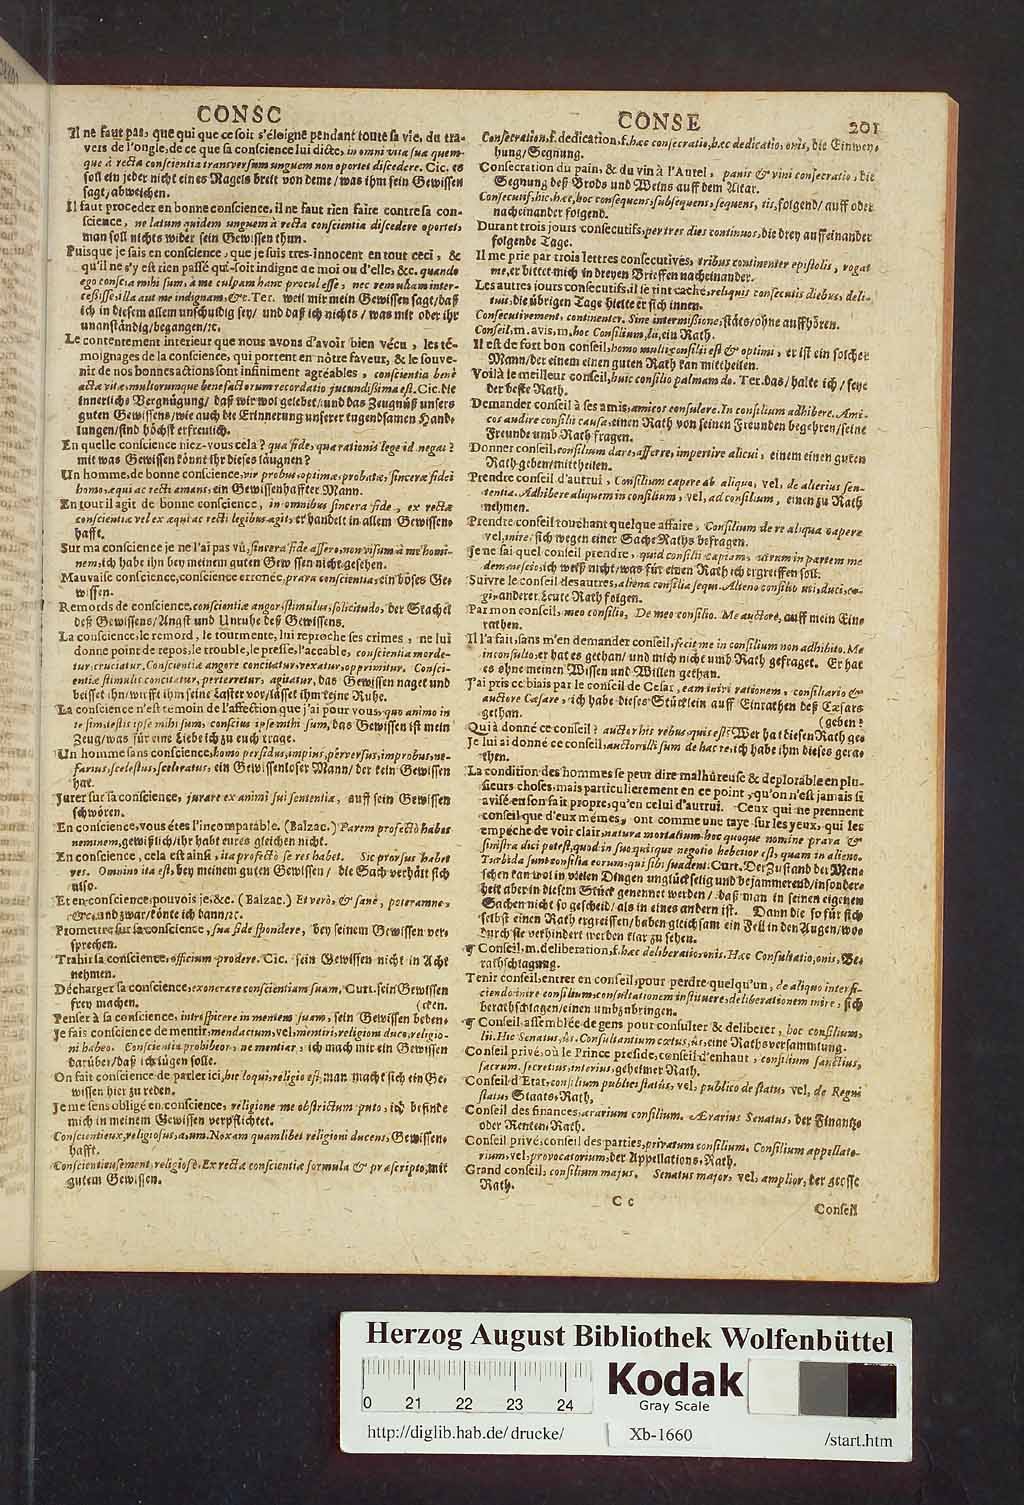 CONSC
CONSE
201
Il ne faut pas, que qui que ce soit s'éloigne pendant toute sa vie, du tra-
vers de l'ongle, de ce que sa conscience lui dicte, in omni vita sua quem-
que à recta conscientia transversum unguem non oportet discedere. Cic. es
soll ein jeder nicht eines Nagels breit von deme / was ihm sein Gewissen
sagt / abweichen.
Il faut proceder en bonne conscience, il ne faut rien faire contre sa con-
science, ne latum quidem unguem à recta conscientia discedere oportet,
man soll nichts wider sein Gewissen thun.
Puisque je sais en conscience, que je suis tres-innocent en tout ceci, &
qu'il ne s'y est rien passé qui soit indigne de moi ou d'elle, &c. quando
ego conscia mihi sum, à me culpam hanc procul esse, nec rem ubam inter-
cessisse, illa aut me indignam, &c. Ter. weil mir mein Gewissen sagt / daß
ich in diesem allem unschuldig sey / und daß ich nichts / was mir oder ihr
unanständig / begangen / ec.
Le contentement interieur que nous avons d'avoir bien vécu, les té-
moignages de la conscience, qui portent en nôtre faveur, & le souve-
nir de nos bonnes actions sont infiniment agréables, conscientia benè
actæ vitæ, multorumque benefactorum recordatio jucundissima est. Cic. die
innerliche Vergnügung / daß wir wol gelebet / und das Zeugnüß unsers
guten Gewissens / wie auch die Erinnerung unserer tugendsamen Hand-
lungen / sind höchst erfreulich.
En quelle conscience niez-vous cela? qua fide, qua rationis lege id negas?
mit was Gewissen könnt ihr dieses läugnen?
Un homme, de bonne conscience, vir probus, optimæ, probatæ, sinceræ fidei
homo, æqui ac recti amans, ein Gewissenhaffter Mann.
En tout il agit de bonne conscience, in omnibus sincera fide, ex rectæ
conscientiæ vel ex æqui ac recti legibus agit, er handelt in allem Gewissen-
hafft.
Sur ma conscience je ne l'ai pas vû, sincera fide assero, non visum à me homi-
nem, ich habe ihn bey meinem guten Gewissen nicht gesehen.
Mauvaise conscience, conscience erronée, prava conscientia, ein böses Ge-
wissen.
Remords de conscience, conscientiæ angor, stimulus, solicitudo, der Stachel
deß Gewissens / Angst und Unruhe deß Gewissens.
La conscience, le remord, le tourmente, lui reproche ses crimes, ne lui
donne point de repos, le trouble, le presse, l'accable, conscientia morde-
tur, cruciatur. Conscientiæ angore concitatur, vexatur, opprimitur. Consci-
entiæ stimulis concitatur, perterretur, agitatur, das Gewissen naget und
beisset ihn / wirfft ihm seine Laster vor / lässet ihm keine Ruhe.
La conscience m'est témoin de l'affection que j'ai pour vous, quo animo in
te sim, testis ipse mihi sum, conscius ipse mihi sum, das Gewissen ist mein
Zeug / was für eine Liebe ich zu euch trage.
Un homme sans conscience, homo perfidus, impius, perversus, improbus, ne-
farius, scelestus, sceleratus, ein Gewissenloser Mann / der kein Gewissen
hat.
Jurer sur sa conscience, jurare ex animi sui sententia, auff sein Gewissen
schwören.
En conscience, vous étes l'incomparable. (Balzac.) Parem profectò habes
neminem, gewißlich / ihr habt eures gleichen nicht.
En conscience, cela est ainsi, ita profectò se res habet. Sic prorsus habet
res. Omnino ita est, bey meinem guten Gewissen / die Sach verhält sich
also.
Et en conscience pouvois je, &c. (Balzac.) Et verò, & sanè, poteramne,
&c. und zwar / könte ich dann / ec.
Promettre sur sa conscience, sua fide spondere, bey seinem Gewissen ver-
sprechen.
Trahir la conscience, officium prodere. Cic. sein Gewissen nicht in Acht
nehmen.
Décharger sa conscience, exonerare conscientiam suam, Curt. sein Gewissen
frey machen. (cken.
Penser à sa conscience, introspicere in mentem suam, sein Gewissen beden-
Je fais conscience de mentir, mendacium, vel, mentiri, religioni duco, religio-
ni habeo. Conscientia prohibeor, ne mentiar, ich mach mir ein Gewissen
darüber / daß ich lügen solle.
On fait conscience de parler ici, hîc loqui, religio est, man macht sich ein Ge-
wissen hier zu reden.
Je me sens obligé en conscience, religione me obstrictum puto, ich befinde
mich in meinem Gewissen verpflichtet.
Conscientieux, religiosus, a, um. Noxam quamlibet religioni ducens, Gewissen-
hafft.
Conscientieusement, religiosè. Ex rectæ conscientiæ formula & præscripto, mit
gutem Gewissen.
Consecration, f. dedication, f. hæc consecratio, hæc dedicatio, onis, die Einwey-
hung / Segnung.
Consecration du pain, & du vin à l'Autel, panis & vini consecratio, die
Segnung deß Brods und Weins auff dem Altar.
Consecutif, hic, hæc, hoc consequens, subsequens, sequens, tis, folgend / auff oder
nacheinander folgend.
Durant trois jours consecutifs, per tres dies continuos, die drey auffeinander
folgende Tage.
Il me prie par trois lettres consecutives, tribus continenter epistolis, rogat
me, er bittet mich in dreyen Brieffen nacheinander.
Les autres jours consecutifs, il se tint caché, reliquis consecutis diebus, deli-
tuit, die übrigen Tage hielte er sich innen.
Consecutivement, continenter. Sine intermissione, stäts / ohne auffhören.
Conseil, m. avis, m, hoc Consilium, lii, ein Rath.
Il est de fort bon conseil, homo multi consilii est & optimi, er ist ein solcher
Mann / der einem einen guten Rath kan mittheilen.
Voilà le meilleur conseil, huic consilio palmam do. Ter. das / halte ich / seye
der beste Rath.
Demander conseil à ses amis, amicos consulere. In consilium adhibere. Ami-
cos audire consilii causa, einen Rath von seinen Freunden begehren / seine
Freunde umb Rath fragen.
Donner conseil, consilium dare, afferre, impertire alicui, einem einen guten
Rath geben / mittheilen.
Prendre conseil d'autrui, Consilium capere ab aliquo, vel, de alterius sen-
tentia. Adhibere aliquem in consilium, vel, ad consilium, einen zu Rath
nehmen.
Prendre conseil touchant quelque affaire, Consilium de re aliqua capere
vel, inire, sich wegen einer Sache Raths befragen.
Je ne sai quel conseil prendre, quid consilii capiam, utrum in partem me
dem, nescio, ich weiß nicht / was für einen Rath ich ergreiffen soll.
Suivre le conseil des autres, aliena consilia sequi. Alieno consilio uti, duci, re-
gi, anderer Leute Rath folgen.
Par mon conseil, meo consilio, De meo consilio. Me auctore, auff mein Ein-
rathen.
Il l'a fait, sans m'en demander conseil, fecit me in consilium non adhibito. Me
inconsulto, er hat es gethan / und mich nicht umb Rath gefraget. Er hat
es ohne meinen Wissen und Willen gethan.
J'ai pris ce biais par le conseil de Cesar, eam inivi rationem, consiliario &
auctore Cæsare, ich habe dieses Stücklein auff Einrathen deß Cæsars
gethan. (geben?
Qui à donné ce conseil? auctor his rebus, quis est? Wer hat diesen Rath ge-
Je lui ai donné ce conseil, auctor illi sum de hac re, ich habe ihm dieses gera-
then.
La condition des hommes se peut dire malhûreuse & deplorable en plu-
sieurs choses, mais particulierement en ce point, qu'on n'est jamais si
avisé en son fait propre, qu'en celui d'autrui. Ceux qui ne prennent
conseil que d'eux mémes, ont comme une taye sur les yeux, qui les
empéche de voir clair, natura mortalium hoc quoque nomine prava &
sinistra dici potest, quod in suo quisque negotio hebetior est, quam in alieno.
Turbida sunt consilia eorum, qui sibi suadent. Curt. Der Zustand der Men-
schen kan wol in vielen Dingen unglückselig und bejammerend / insonder-
heit aber in diesem Stück genennet werden / daß man in seinen eigenen
Sachen nicht so gescheid / als in eines andern ist. Dann die so für sich
selbst einen Rath ergreiffen / haben gleichsam ein Fell in den Augen / wo-
durch sie verhindert werden klar zu sehen.
¶ Conseil, m. deliberation, f. hæc deliberatio, onis. Hæc Consultatio, onis, Be-
rathschlagung.
Tenir conseil, entrer en conseil, pour perdre quelqu'un, de aliquo interfi-
ciendo inire consilium, consultationem instituere, deliberationem inire, sich
berathschlagen / einen umbzubringen.
¶ Conseil assemblée de gens pour consulter & deliberer, hoc consilium,
lii. Hic Senatus, ûs. Consultantium cœtus, ûs, eine Rathsversammlung.
Conseil privé, où le Prince preside, conseil d'enhaut, consilium sanctius,
sacrum. secretius, interius, geheimer Rath.
Conseil d'Etat, consilium publici status, vel, publico de statu, vel, de Regni
statu, Staats-Rath.
Conseil des finances, ærarium consilium. Ærarius Senatus, der Finantz-
oder Renten-Rath.
Conseil privé, conseil des parties, privatum consilium. Consilium appellato-
rium, vel, provocatorium, der Appellations-Rath.
Grand conseil, consilium majus. Senatus major, vel, amplior, der grosse
Rath.
C c
Conseil
Herzog August Bibliothek Wolfenbüttel
Kodak
Gray Scale
0 21 22 23 24
http://diglib.hab.de/drucke/
Xb-1660
/start.htm